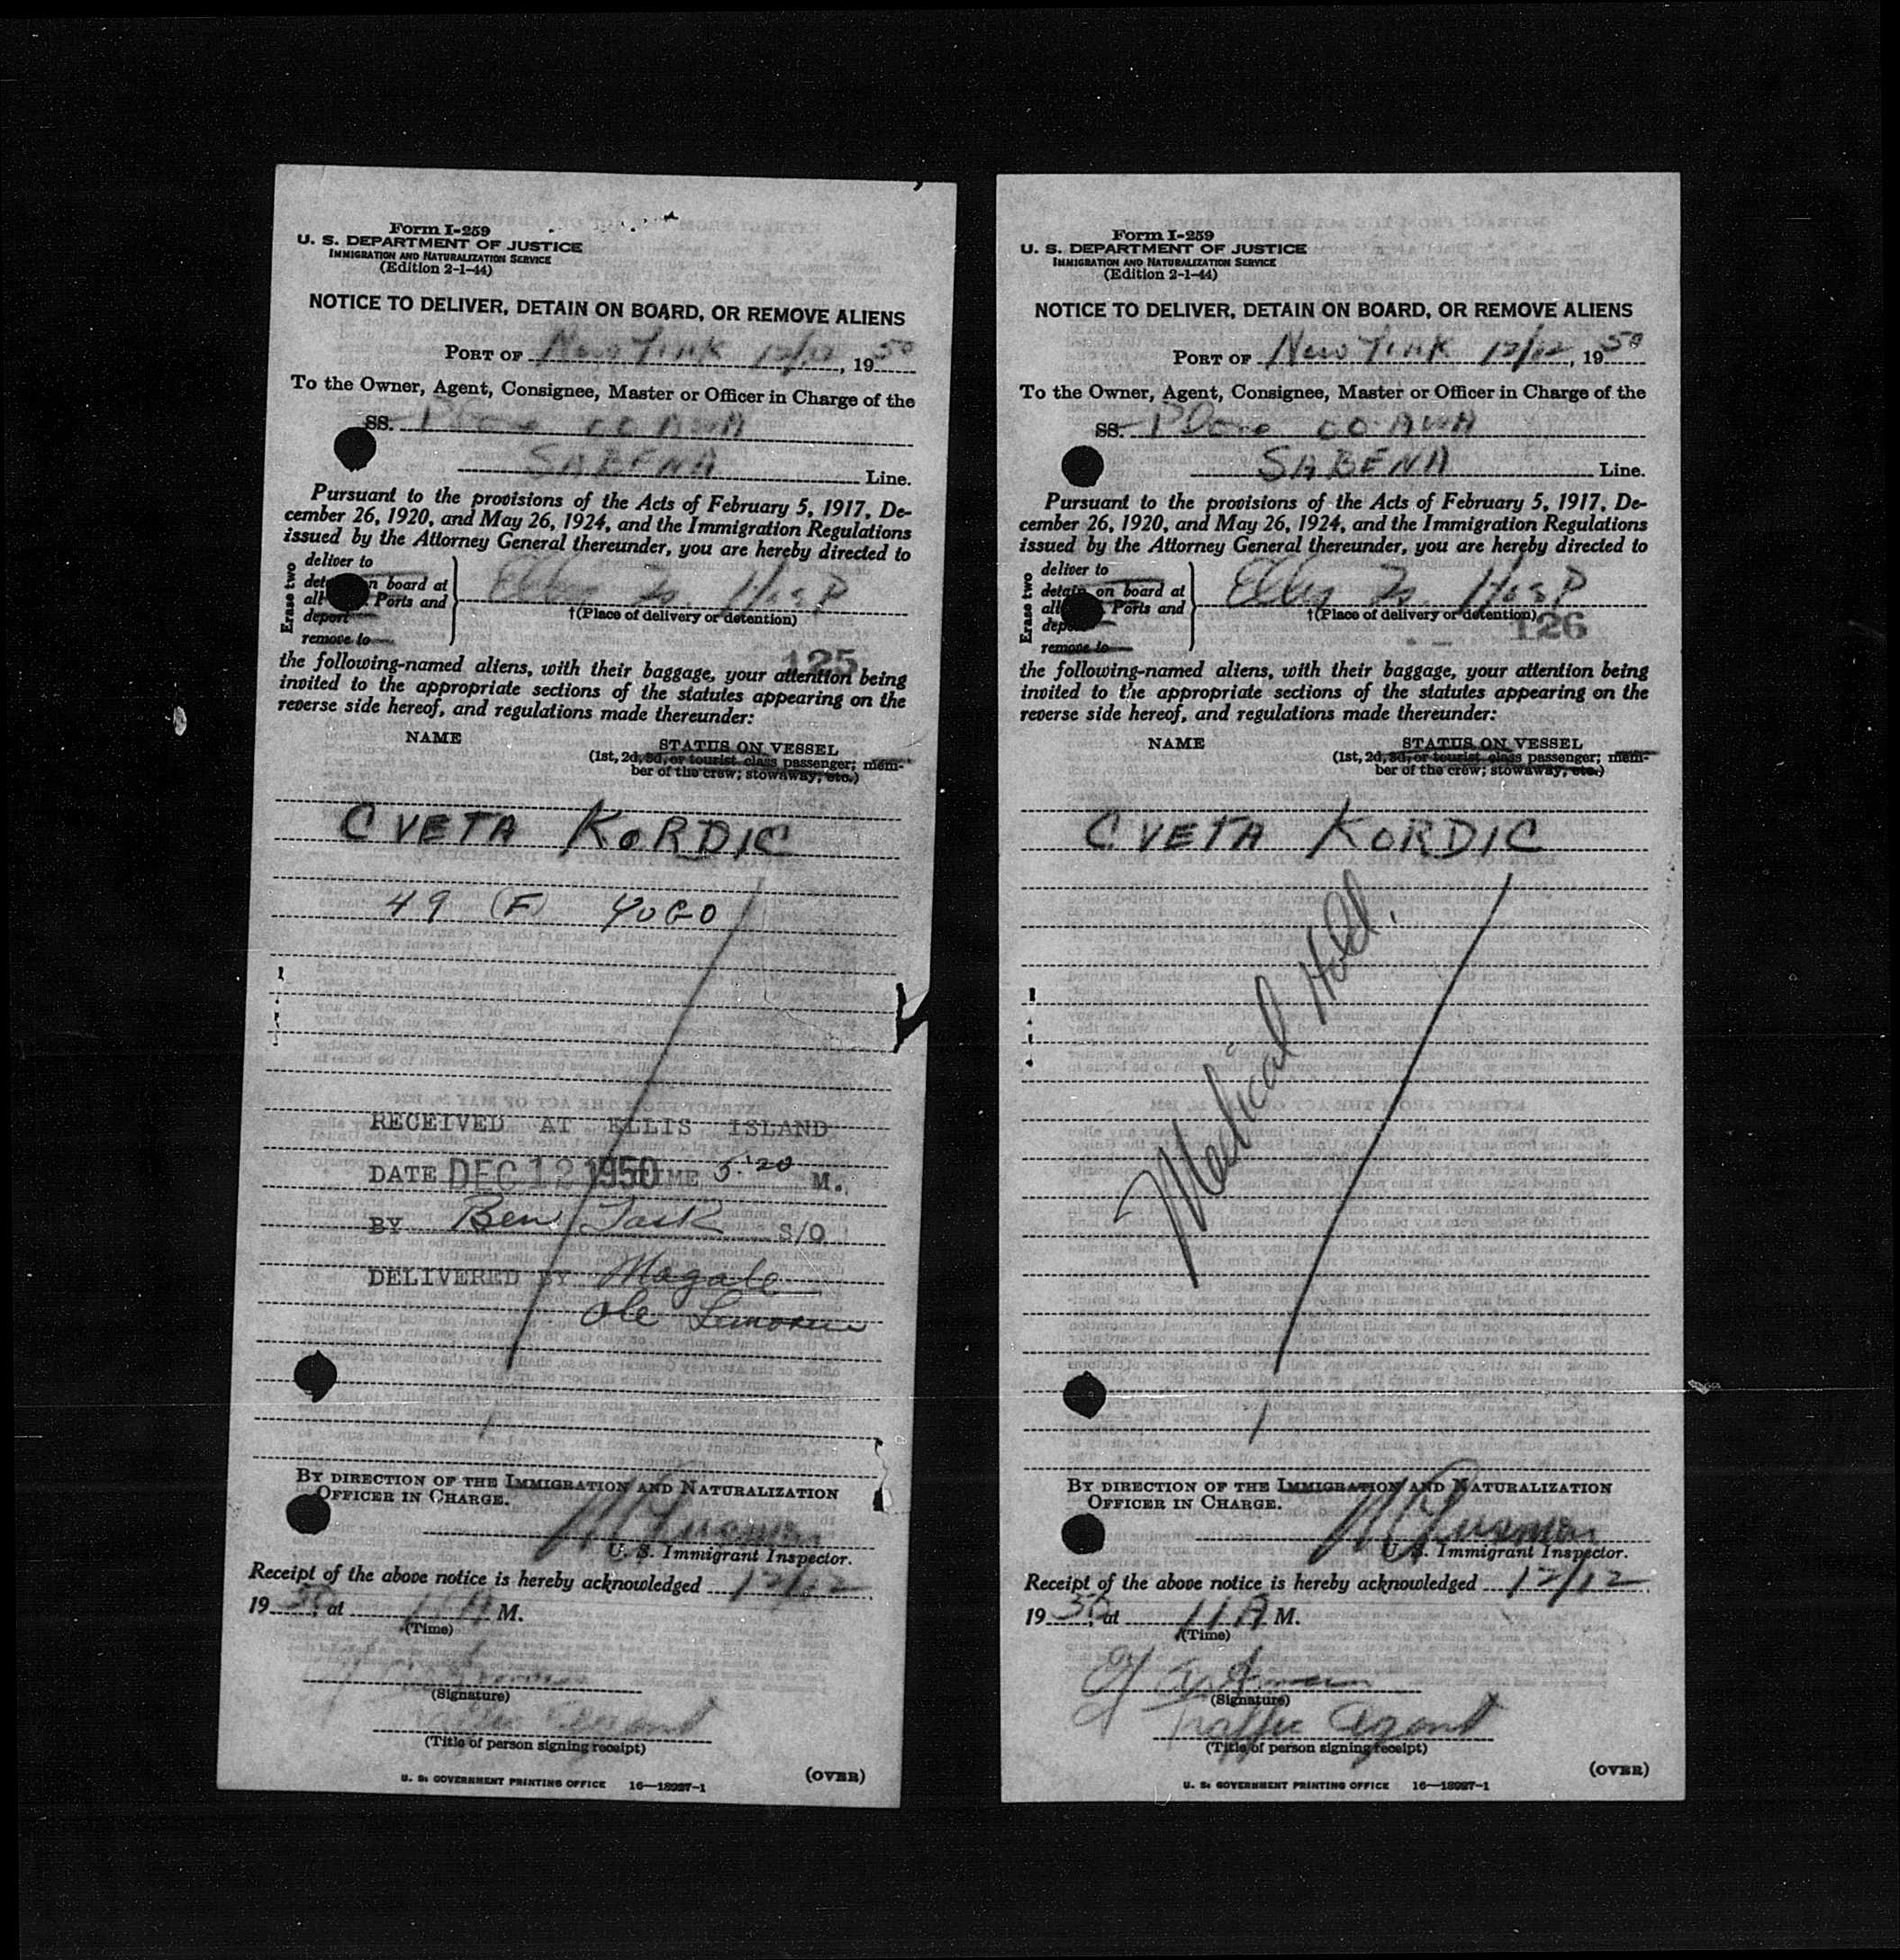 Form I-259
U. S. DEPARTMENT OF JUSTICE
IMMIGRATION AND NATURALIZATION SERVICE
(Edition 2-1-44)
NOTICE TO DELIVER, DETAIN ON BOARD, OR REMOVE ALIENS
PORT OF New York 12/12, 1950
To the Owner, Agent, Consignee, Master or Officer in Charge of the
SS. OO AWA
SABENA Line.
Pursuant to the provisions of the Acts of February 5, 1917, De-
cember 26, 1920, and May 26, 1924, and the Immigration Regulations
issued by the Attorney General thereunder, you are hereby directed to
Erase two
deliver to
detain on board at
all Ports and
deport
remove to
Ellis Is. Hosp
†(Place of delivery or detention)
125
the following-named aliens, with their baggage, your attention being
invited to the appropriate sections of the statutes appearing on the
reverse side hereof, and regulations made thereunder:
NAME STATUS ON VESSEL
(1st, 2d, 3d, or tourist class passenger; mem-
ber of the crew; stowaway, etc.)
CVETA KORDIC
49 (F) YUGO
RECEIVED AT ELLIS ISLAND
DATE DEC 12 1950 TIME 5:20 M.
BY Ben S/O
DELIVERED BY
By direction of the Immigration and Naturalization
Officer in Charge.
U. S. Immigrant Inspector.
Receipt of the above notice is hereby acknowledged 12/12
1950, at 11 A M.
(Time)
(Signature)
Traffic Agent
(Title of person signing receipt)
U. S. GOVERNMENT PRINTING OFFICE 16—18027-1
(OVER)
Form I-259
U. S. DEPARTMENT OF JUSTICE
IMMIGRATION AND NATURALIZATION SERVICE
(Edition 2-1-44)
NOTICE TO DELIVER, DETAIN ON BOARD, OR REMOVE ALIENS
PORT OF New York 12/12, 1950
To the Owner, Agent, Consignee, Master or Officer in Charge of the
SS. OO AWA
SABENA Line.
Pursuant to the provisions of the Acts of February 5, 1917, De-
cember 26, 1920, and May 26, 1924, and the Immigration Regulations
issued by the Attorney General thereunder, you are hereby directed to
Erase two
deliver to
detain on board at
all Ports and
deport
remove to
Ellis Is. Hosp
†(Place of delivery or detention)
126
the following-named aliens, with their baggage, your attention being
invited to the appropriate sections of the statutes appearing on the
reverse side hereof, and regulations made thereunder:
NAME STATUS ON VESSEL
(1st, 2d, 3d, or tourist class passenger; mem-
ber of the crew; stowaway, etc.)
CVETA KORDIC
Medical Hold.
By direction of the Immigration and Naturalization
Officer in Charge.
U. S. Immigrant Inspector.
Receipt of the above notice is hereby acknowledged 12/12
1950, at 11 A M.
(Time)
(Signature)
Traffic Agent
(Title of person signing receipt)
U. S. GOVERNMENT PRINTING OFFICE 16—18027-1
(OVER)